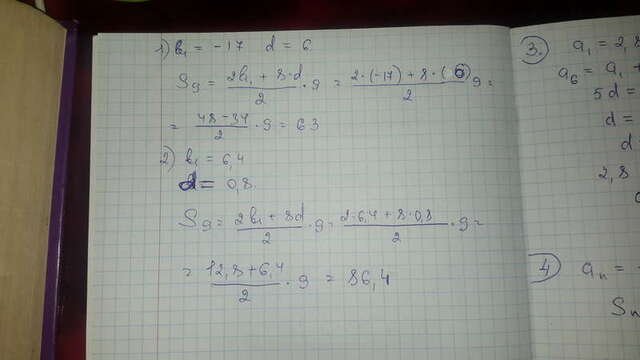 1) b₁ = -17 d = 6
S₉ = (2b₁ + 8·d)/2 · 9 = (2·(-17) + 8·(6))/2 9 =
= (48-34)/2 · 9 = 63
2) b₁ = 6,4
d = 0,8
S₉ = (2b₁ + 8d)/2 · 9 = (2·6,4 + 8·0,8)/2 · 9 =
= (12,8+6,4)/2 · 9 = 86,4
3. a₁ = 2,8
a₆ = a₁ +
5d =
d =
d
2,8
4) aₙ = -
Sₙ